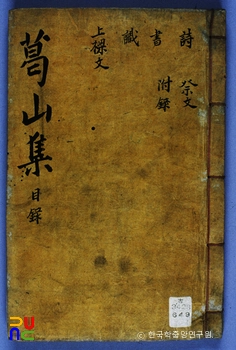 葛山集 目錄
詩 祭文
書 附錄
識
上樑文
© 한국학중앙연구원